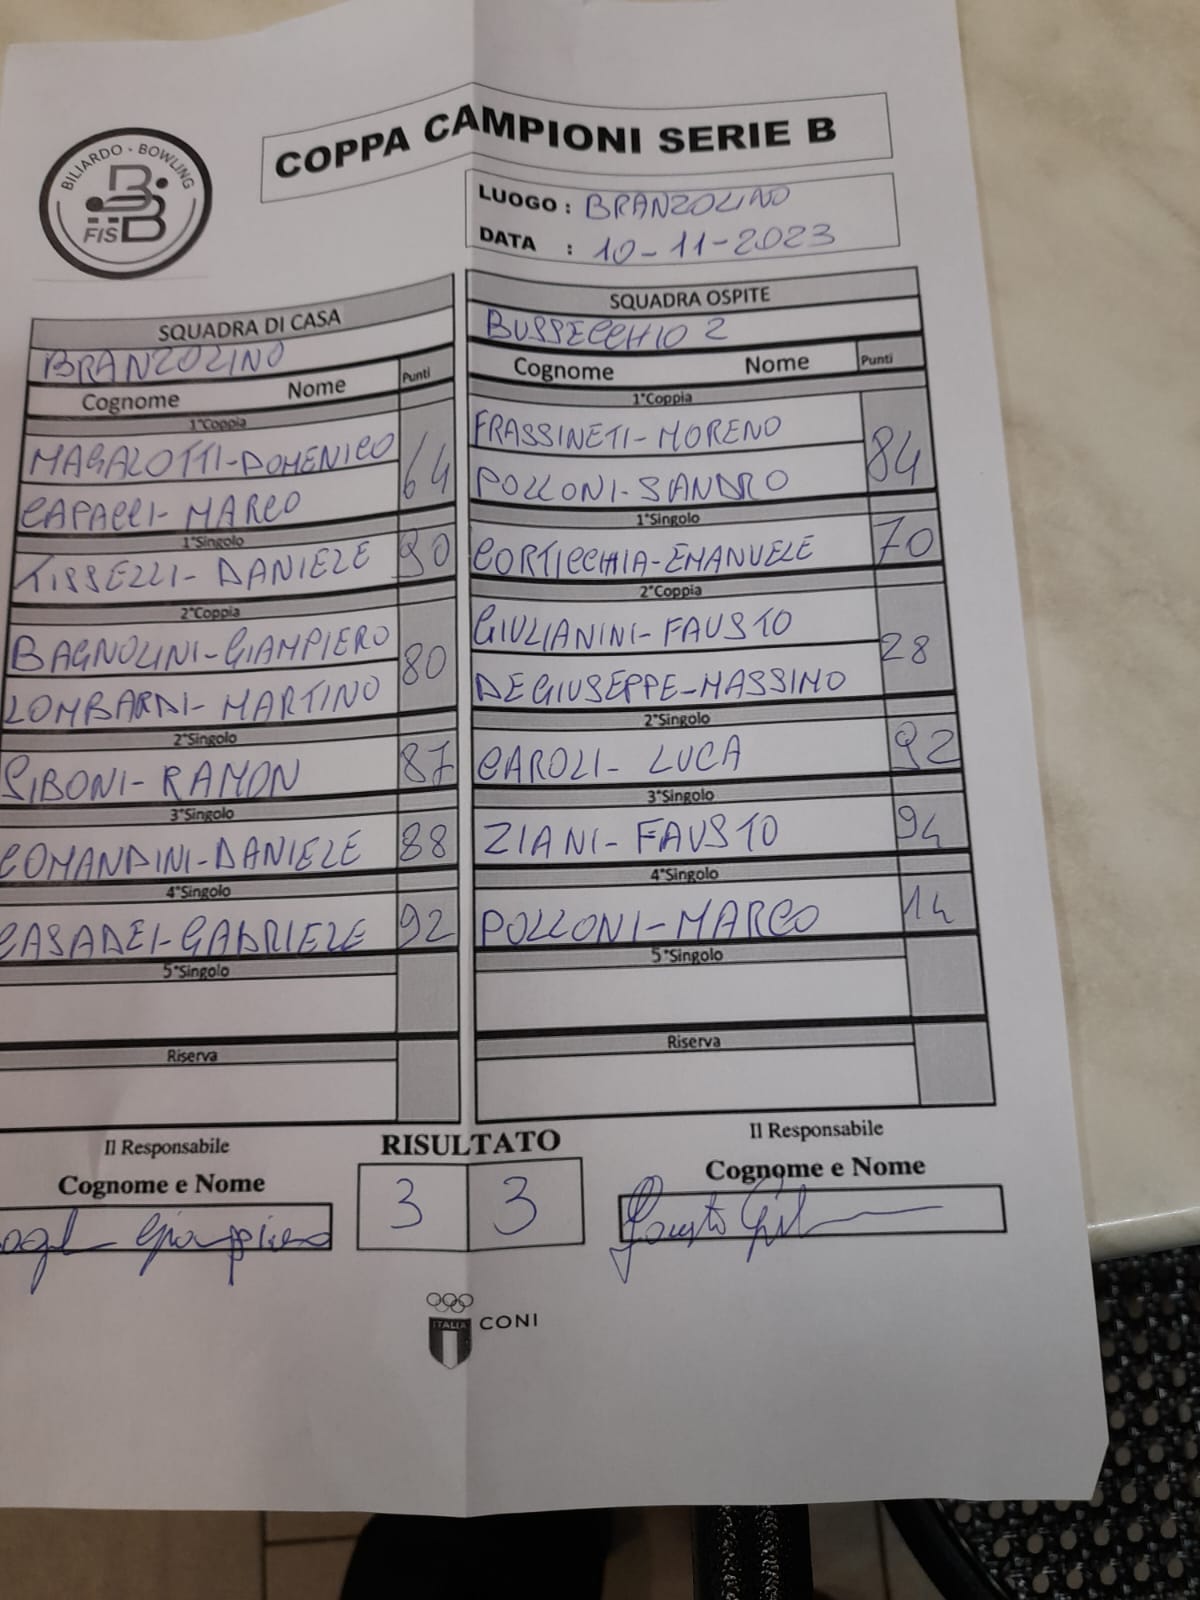 BILIARDO - BOWLING
FISBB
COPPA CAMPIONI SERIE B
LUOGO : BRANZOLINO
DATA : 10-11-2023
SQUADRA DI CASA
BRANZOLINO
Cognome Nome Punti
1°Coppia
MAGALOTTI-DOMENICO
CAPACCI-MARCO
64
1°Singolo
TISSELLI-DANIELE 90
2°Coppia
BAGNOLINI-GIAMPIERO
LOMBARDI-MARTINO
80
2°Singolo
SIBONI-RAMON 87
3°Singolo
COMANDINI-DANIELE 88
4°Singolo
CASADEI-GABRIELE 92
5°Singolo
Riserva
SQUADRA OSPITE
BUSSECCHIO 2
Cognome Nome Punti
1°Coppia
FRASSINETI-MORENO
POLLONI-SANDRO
84
1°Singolo
CORTICCHIA-EMANUELE 70
2°Coppia
GIULIANINI-FAUSTO
DEGIUSEPPE-MASSIMO
28
2°Singolo
CAROLI-LUCA 92
3°Singolo
ZIANI-FAUSTO 94
4°Singolo
POLLONI-MARCO 14
5°Singolo
Riserva
Il Responsabile
Cognome e Nome
Giampiero
RISULTATO
3 3
Il Responsabile
Cognome e Nome
Fausto
ITALIA
CONI